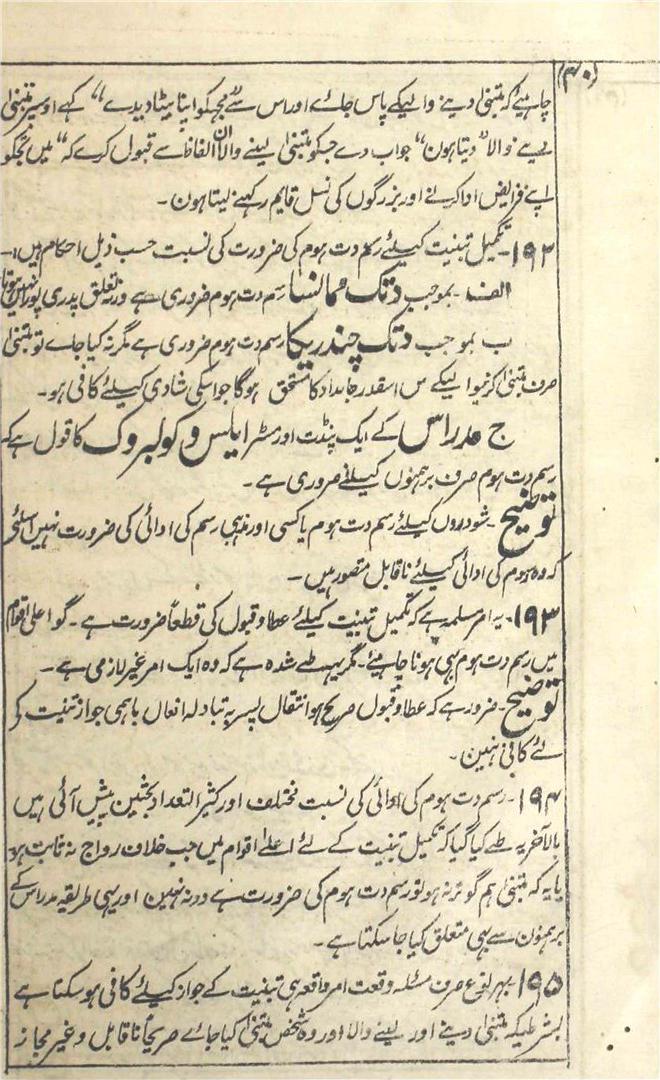 (۴۰)
چاہیئے کہ متبنیٰ دینے والیکے پاس جائے اور اس سے “مجہکو اپنا بیٹا دیدے” کہے اوسپر متبنیٰ
دینے والا “دیتا ہون” جواب دے جسکو متبنیٰ لینے والا ان الفاظ سے قبول کرے کہ “میں تجکو
اپنے فرایض ادا کرنے اور بزرگوں کی نسل قایم رکہنے لیتا ہون۔
۱۹۲۔ تکمیل تبنیت کیلئے رسم دت ہوم کی ضرورت کی نسبت حسب ذیل احکام ہیں:۔
الف ۔ بموجب دتک ممانسا رسم دت ہوم ضروری ہے ورنہ تعلق پدری پورا نہیں ہوتا
ب بموجب دتک چندریکا رسم دت ہوم ضروری ہے مگر نہ کیا جاے تو متبنیٰ
صرف متبنیٰ کرنیوالیکے اسقدر جایداد کا مستحق ہوگا جو اسکی شادی کیلئے کافی ہو۔
ج مدراس کے ایک پنڈت اور مسٹر ایلس و کولبروک کا قول ہے کہ
رسم دت ہوم صرف برہمنوں کیلئے ضروری ہے۔
توضیح ۔ شودروں کیلئے رسم دت ہوم یا کسی اور مذہبی رسم کی ادائی کی ضرورت نہیں اسلئے
کہ وہ ہوم کی ادائی کیلئے ناقابل متصور ہیں۔
۱۹۳۔ یہ امر مسلمہ ہے کہ تکمیل تبنیت کیلئے عطا و قبول کی قطعاً ضرورت ہے۔ گو اعلی اقوام
میں رسم دت ہوم بہی ہونا چاہیئے۔ مگر یہہ طے شدہ ہے کہ وہ ایک امر غیر لازمی ہے۔
توضیح ۔ ضرور ہے کہ عطا و قبول صریح ہو انتقال پسر بہ تبادلہ باہمی جواز تبنیت کی
لئے کافی نہین۔
۱۹۴۔ رسم دت ہوم کی ادائی کی نسبت مختلف اور کثیر التعداد بحثین پیش آئی ہیں
بالآخر یہ طے کیا گیا کہ تکمیل تبنیت کے لئے اعلےٰ اقوام میں جب خلاف رواج نہ ثابت ہو
یا یہ کہ متبنیٰ ہم گوتر نہ ہو تو رسم دت ہوم کی ضرورت ہے ورنہ نہین اور یہی طریقہ مدراس کے
برہمنون سے بہی متعلق کیا جا سکتا ہے۔
۱۹۵۔ بہر نوع صرف مسئلہ وقعت امر واقعہ ہی تبنیت کے جواز کیلئے کافی ہو سکتا ہے
بشرطیکہ متبنیٰ دینے اور لینے والا اور وہ شخص متبنیٰ کیا جاے صریحاً ناقابل و غیر مجاز